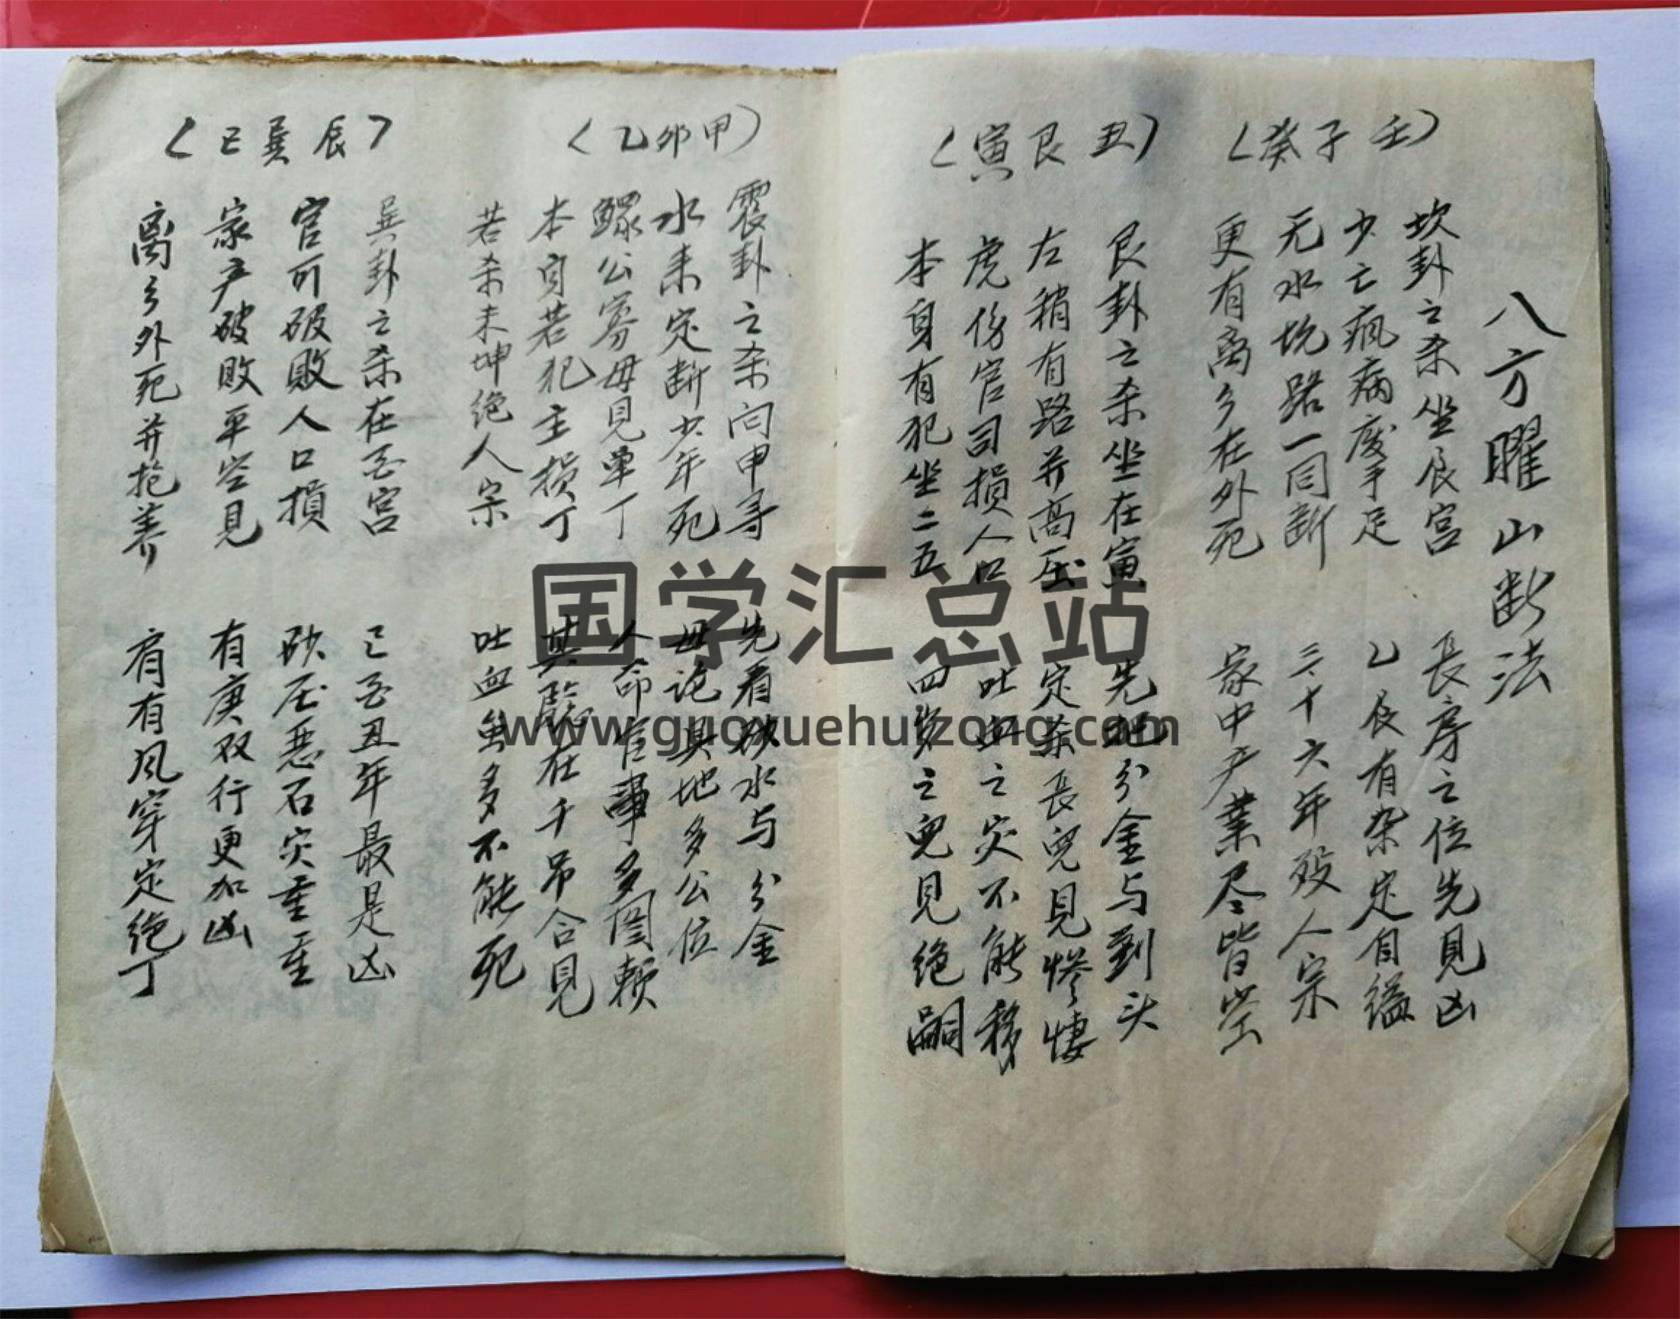 八方曜山断法
(癸子壬)
坎卦之杀坐辰宫 長房之位先見凶
少亡疯病废手足 乙辰有杂定自缢
无水坑路一同断 三十六年殁人宗
更有离乡在外死 家中产業尽皆空
(寅艮丑)
艮卦之杀坐在寅 先把分金与到头
左稍有路并高压 定杀長兒見惨悽
虎伤官司損人口 吐血之灾不能移
本身有犯坐二五 四势之兒見绝嗣
(乙卯甲)
震卦之杀问申寻 先看砂水与分金
水来定断少年死 母论其地多公位
鳏公寡母見单丁 人命官事多图赖
本身若犯主損丁 其临在千吊合見
若杀未坤绝人宗 吐血虫多不能死
(巳巽辰)
巽卦之杀在酉宫 巳酉丑年最是凶
官司破败人口損 砂压恶石灾重重
家产破败平空見 有庚双行更加凶
离乡外死并抱养 肩有风穿定绝丁
国学汇总站
www.guoxuehuizong.com